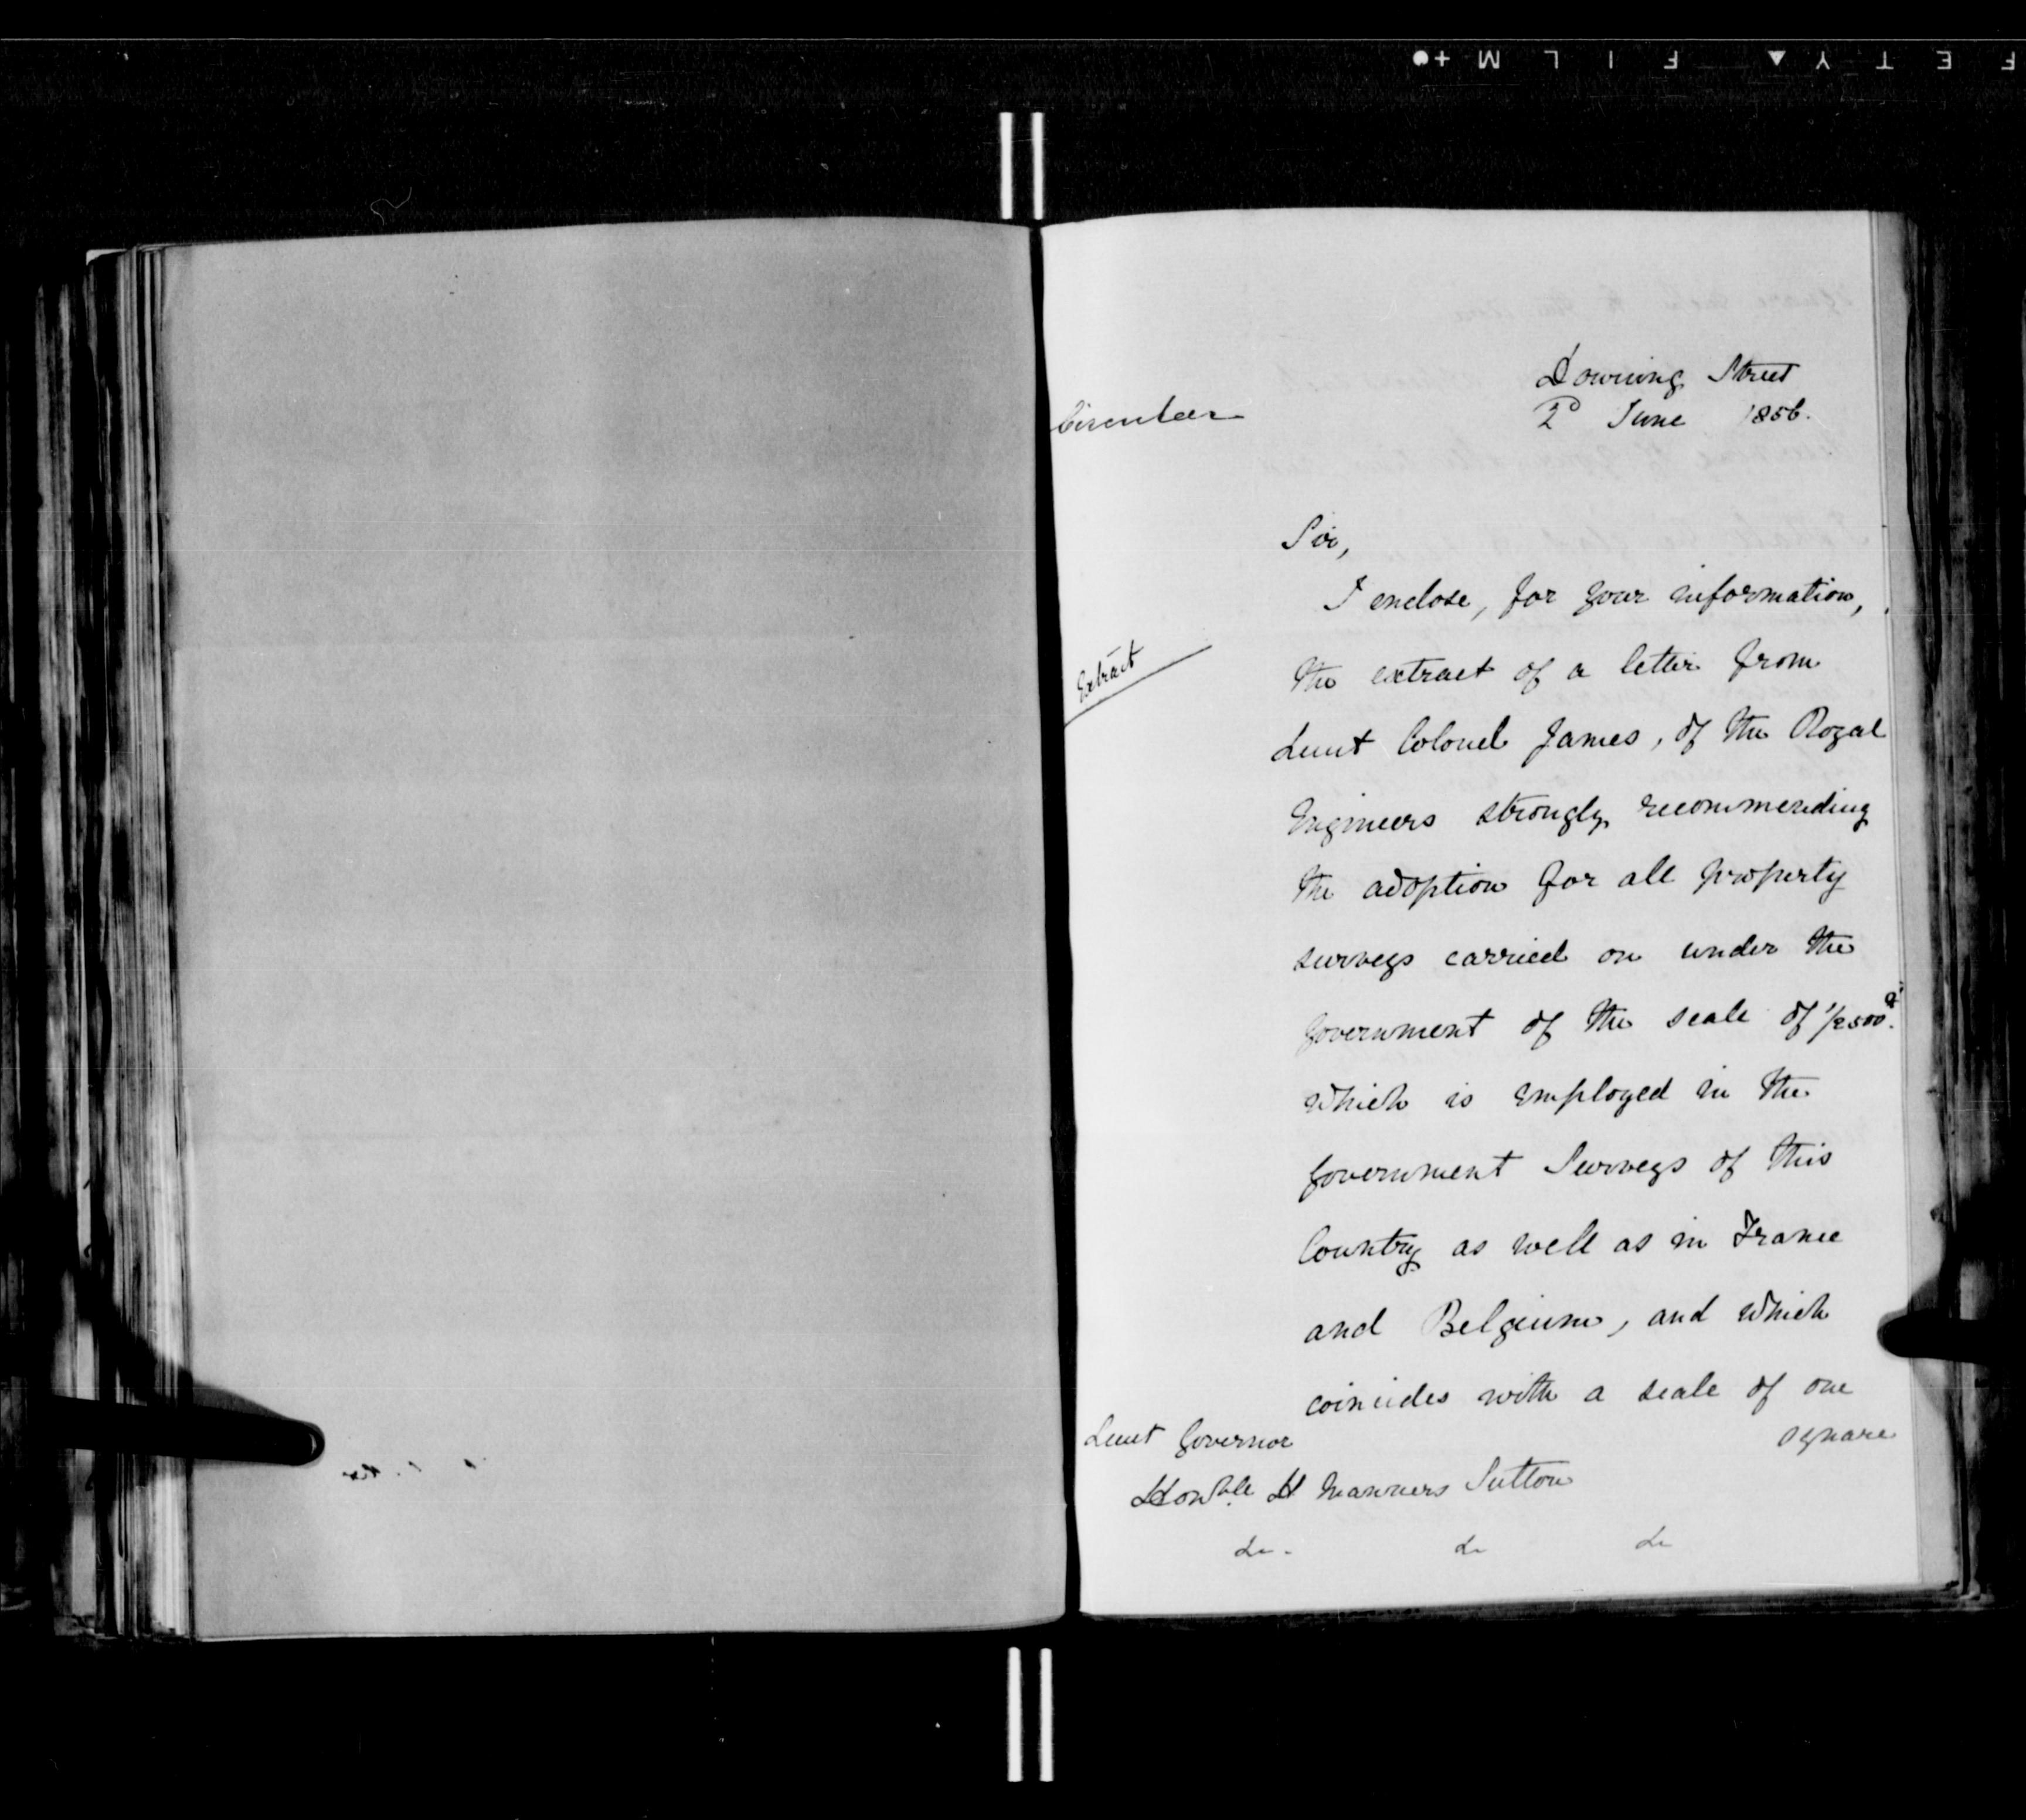 SAFETY▲ FILM+●
Circular
Downing Street
2d June 1856.
Sir,
I enclose, for your information,
Extract
the extract of a letter from
Lieut Colonel James, of the Royal
Engineers strongly recommending
the adoption for all property
surveys carried on under the
Government of the scale of 1/2500
which is employed in the
Government Surveys of this
Country as well as in France
and Belgium, and which
coincides with a scale of one
square
Lieut Governor
Honble H Manners Sutton
&c. &c &c